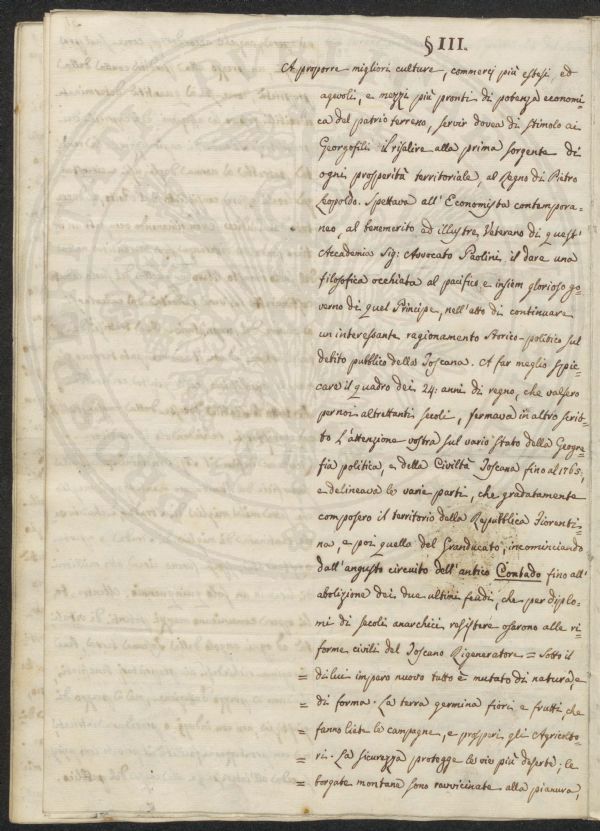 § III.
A proporre migliori culture, commerzj più estesi, ed
agevoli, e mezzi più pronti di potenza economi-
ca del patrio terreno, servir dovea di stimolo ai
Georgofili il risalire alla prima sorgente di
ogni prosperità territoriale, al Regno di Pietro
Leopoldo. Spettava all'Economista contempora-
neo, al benemerito ed illustre Veterano di quest'
Accademia Sig: Avvocato Paolini, il dare una
filosofica occhiata al pacifico e insiem glorioso go-
verno di quel Principe, nell'atto di continuare
un interessante ragionamento Storico-politico sul
debito pubblico della Toscana. A far meglio spic-
care il quadro dei 24: anni di regno, che valsero
per noi altrettanti secoli, fermava in altro scrit-
to l'attenzione vostra sul vario stato della Geogra-
fia politica, e della Civiltà Toscana fino al 1765;
e delineava le varie parti, che gradatamente
composero il territorio della Repubblica Fiorenti-
na, e poi quello del Granducato, incominciando
dall'angusto circuito dell'antico Contado fino all'
abolizione dei due ultimi feudi, che per diplo-
mi di secoli anarchici resistere osarono alle ri-
forme civili del Toscano Rigeneratore = Sotto il
= di lui impero nuovo tutto è mutato di natura, e
= di forma. La terra germina fiori e frutti, che
= fanno liete le campagne, e prosperi gli Agricolto-
= ri. La sicurezza protegge le vie più deserte; le
= borgate montane sono ravvicinate alla pianura,